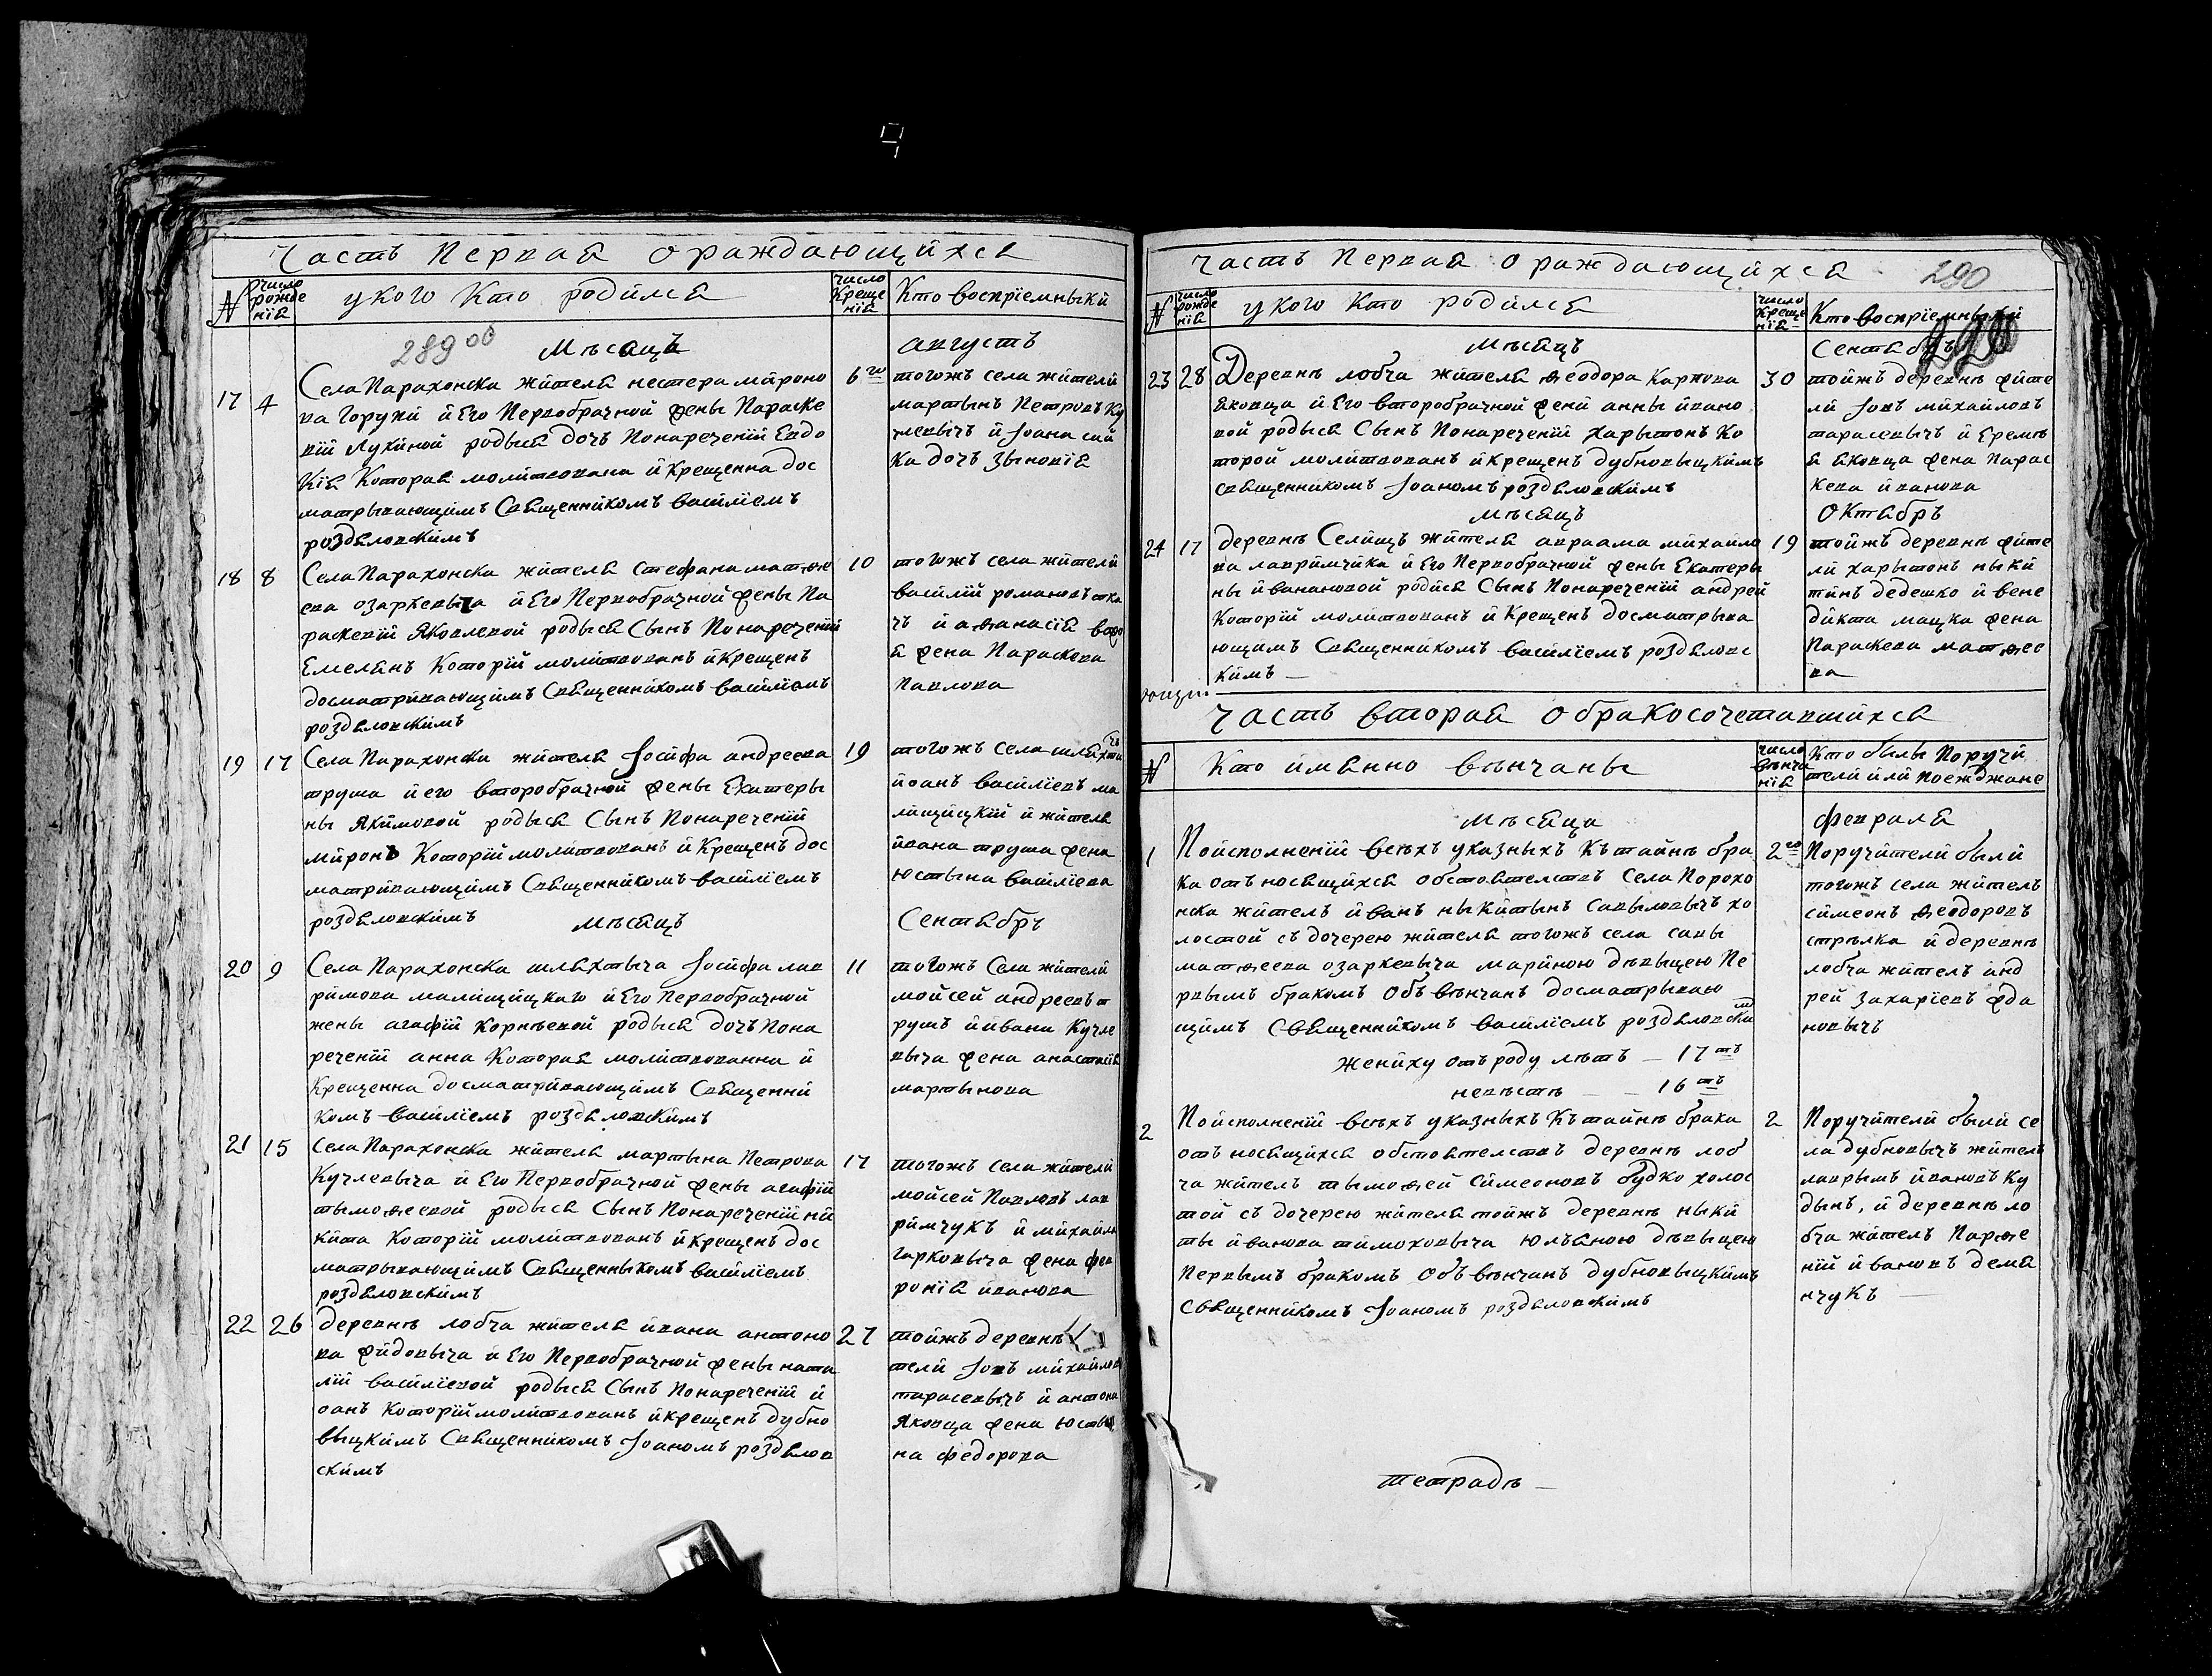 Часть Первая ораждающихся
N
число рожде нїя
укого Кто родился
число Креще нїя
Кто воспрїемныки
289 об
Мѣсяцъ
августъ
17
4
Села Парахонска жителя нестера мироно
ва Горупи и Его Первобрачной жены Параске
вїи Лукиной родыся дочъ Понареченїи Евдо
Кїя Которая молитвована и Крещенна дос
матрывающимъ Священникомъ василїемъ
роздяловскимъ
6го
тогожъ села жители
мартынъ Петровъ Ку
члевычъ и Iоана сай
Ка дочъ Зыновїя
18
8
Села Парахонска жителя стефана матѳе
ева озаркевыча и Его Первобрачной жены Па
раскевїи Яковлевой родыся Сынъ Понареченїи
Емелянъ Которїй молитвованъ и Крещенъ
досматривающимъ Священникомъ василїемъ
роздяловскимъ
10
тогожъ села жители
василїй романовъ тка
чъ и аѳанасїя
я жена Параскева
Павлова
19
17
Села Парахонска жителя Iосифа андреева
труша и его второбрачной жены Екатеры
ны Якимовой родыся Сынъ Понареченїи
миронъ Которїй молитвованъ и Крещенъ дос
матривающимъ Священникомъ василїемъ
роздяловскимъ
19
тогожъ села шляхты
иоанъ василїевъ ма
лищицкїй и жителя
ивана труша жена
юстына василїева
мѣсяцъ
Сентябрь
20
9
Села Парахонска шляхтыча Iосифа лав
римова малищицкаго и Его Первобрачной
жены агафїи Корнѣевой родыся дочъ Пона
реченїи анна Которая молитвованна и
Крещенна досматривающимъ Священни
комъ василїемъ роздяловскимъ
11
тогожъ Села жители
мойсей андреевъ т
рушъ и ивана Кучле
выча жена анастасїя
мартынова
21
15
Села Парахонска жителя мартына Петрова
Кучлевыча и Его Первобрачной жены агафїи
тымоѳеевой родыся Сынъ Понареченїи ни
кита Которїй молитвованъ и крещенъ дос
матрывающимъ Священныкомъ василїемъ
роздяловскимъ
17
тогожъ села жители
мойсей Павловъ лав
римчукъ и михайла
гарковыча жена фев
ронїя иванова
22
26
деревнѣ лобча жителя ивана антоно
ва жидовыча и Его Первобрачной жены ната
лїи василїевой родыся Сынъ Понареченїи и
оанъ Которїй молитвованъ и крещенъ дубно
выцкимъ Священникомъ Iоаномъ роздялов
скимъ
27
тойжъ деревнѣ
тели Iовъ михайловъ
тарасевычъ и антона
Яковца жена юсты
на федорова
Часть Первая ораждающихся
290
N
число рожде нїя
укого Кто родился
число Креще нїя
Кто воспрїемныки
мѣсяцъ
Сентябрь
23
28
Деревнѣ лобча жителя ѳеодора Карпова
яковца и Его второбрачной жени анны ивано
вой родыся Сынъ Понареченїи харытонъ Ко
торой молитвованъ и крещенъ дубновыцкимъ
священникомъ Iоаномъ роздяловскимъ
30
тойжъ деревнѣ жите
ли Iовъ михайловъ
тарасевычъ и Еремѣ
я яковца жена Парас
кева иванова
мѣсяцъ
Октябръ
24
17
деревнѣ Селищъ жителя авраама михайло
ва лавримчика и Его Первобрачной жены Екатеры
ны ивановой родися Сынъ Понареченїи андрей
Которїй молитвованъ и Крещенъ досматрыва
ющимъ Священникомъ василїемъ роздяловс
кимъ —
19
тойжъ деревнѣ жите
ли харытонъ ныки
тинъ дедешко и вене
дикта мацка жена
Параскева матѳее
ва
Часть вторая обракосочетавшихся
N
Кто именно венчаны
число венча нїя
Кто былы Поручи
тели или Поежджане
Мѣсяца
февраля
1
Поисполненїи всѣхъ указныхъ Къ тайнѣ бра
ка отъносящихся обстоятелствъ Села Порохо
нска житель иванъ ныкитынъ Савыловычъ хо
лостой съ дочерею жителя тогожъ села савы
матѳеева озаркевыча мариною дѣвыцею Пе
рвымъ бракомъ Объ венчанъ досматрываю
щимъ Священникомъ василїемъ роздяловским
Жениху отъ роду лѣтъ — 17тъ
невѣстѣ — — 16тъ
2го
Поручители были
тогожъ села житель
симеонъ ѳеодоровъ
стрѣлка и деревнѣ
лобча житель анд
рей захарїевъ жда
новычъ
2
Поисполненїи всѣхъ указныхъ Къ тайнѣ брака
отъ носящихся обстоятелствъ деревнѣ лоб
ча житель тымоѳей Симеоновъ будко холос
той съ дочерею жителя тойжъ деревнѣ ныки
ты иванова тимоховыча юлѣяною дѣвыцею
Первымъ бракомъ Объ венчанъ дубновыцкимъ
Священникомъ Iоаномъ роздяловскимъ
2
Поручители были се
ла дубновычъ житель
лаврынъ ивановъ Ку
дынъ, и деревнѣ ло
бча житель Парѳе
нїй ивановъ демя
нчукъ —
тетрадъ —